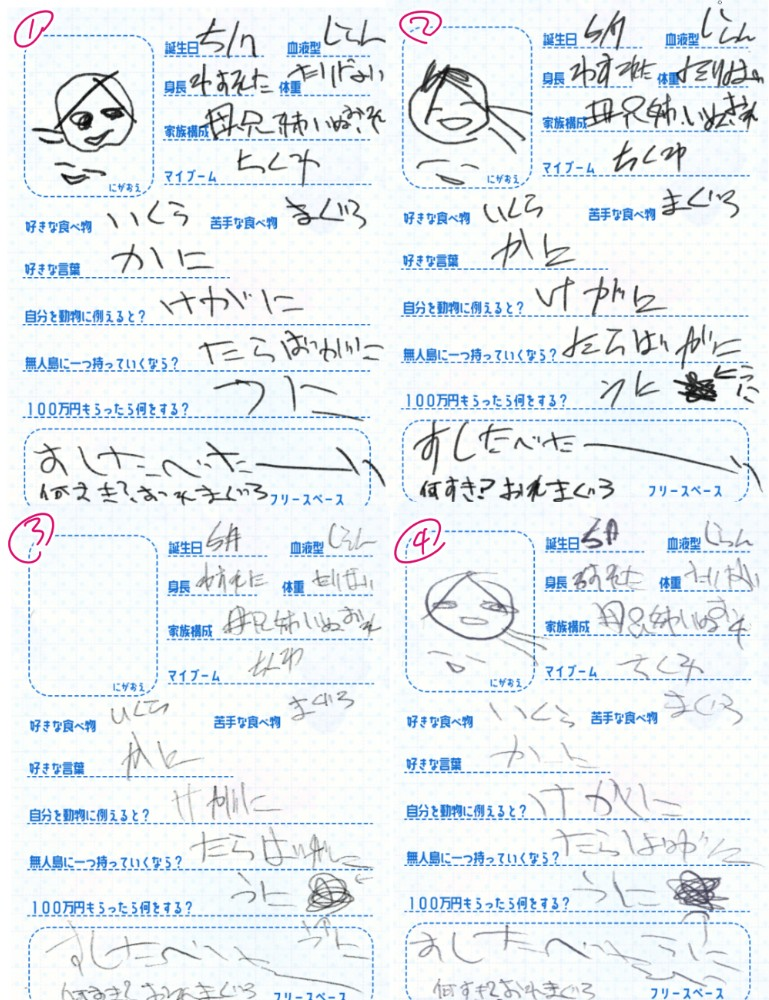 ①
誕生日 5/7 血液型 じてん
身長 わすれた 体重 たりない
家族構成 母兄姉いぬおそ
マイブーム ちくわ
にがおえ
好きな食べ物 いくら 苦手な食べ物 まぐろ
好きな言葉 かに
自分を動物に例えると? けがに
無人島に一つ持っていくなら? たらばがに
100万円もらったら何をする? うに
すしたべたーい
何すき?おれまぐろ
フリースペース
②
誕生日 5/7 血液型
身長 わすれた 体重
家族構成 母兄姉いぬ
マイブーム ちくわ
にがおえ
好きな食べ物 いくら 苦手な食べ物 まぐろ
好きな言葉 かに
自分を動物に例えると? けがに
無人島に一つ持っていくなら? たらばがに
100万円もらったら何をする? うに ←うに
すしたべたーい
何すき?おれまぐろ
フリースペース
③
誕生日 血液型
身長 体重
家族構成 母兄姉いぬ
マイブーム ちくわ
にがおえ
好きな食べ物 いくら 苦手な食べ物 まぐろ
好きな言葉 かに
自分を動物に例えると? けがに
無人島に一つ持っていくなら? たらばがに
100万円もらったら何をする? うに
すしたべたーい うに
何すき?おれまぐろ
フリースペース
④
誕生日 血液型
身長 体重
家族構成 母兄姉いぬ
マイブーム ちくわ
にがおえ
好きな食べ物 いくら 苦手な食べ物 まぐろ
好きな言葉 かに
自分を動物に例えると? けがに
無人島に一つ持っていくなら? たらばがに
100万円もらったら何をする? うに
すしたべたーい うに
何すき?おれまぐろ
フリースペース